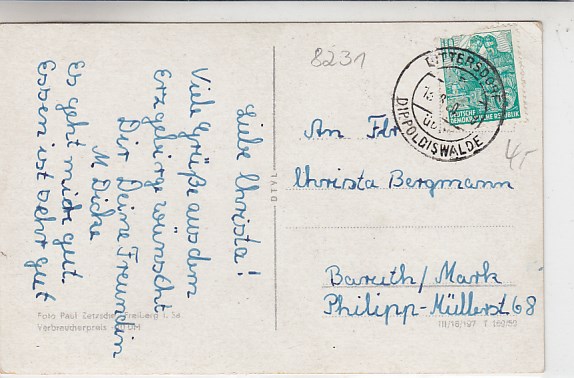 Liebe Christa!
Viele Grüße aus dem
Erzgebirge wünscht
Dir Deine Freundin
M. Dicke
Es geht mir gut.
Essen ist sehr gut
8231
DITTERSDORF
DIPPOLDISWALDE
DEUTSCHE
DEMOKRATISCHE REPUBLIK
An Frl
Christa Bergmann
Baruth/Mark
Philipp-Müllerst 68
Foto Paul Zetzsche, Freiberg i. Sa.
Verbraucherpreis DM
III/18/197 T 160/50